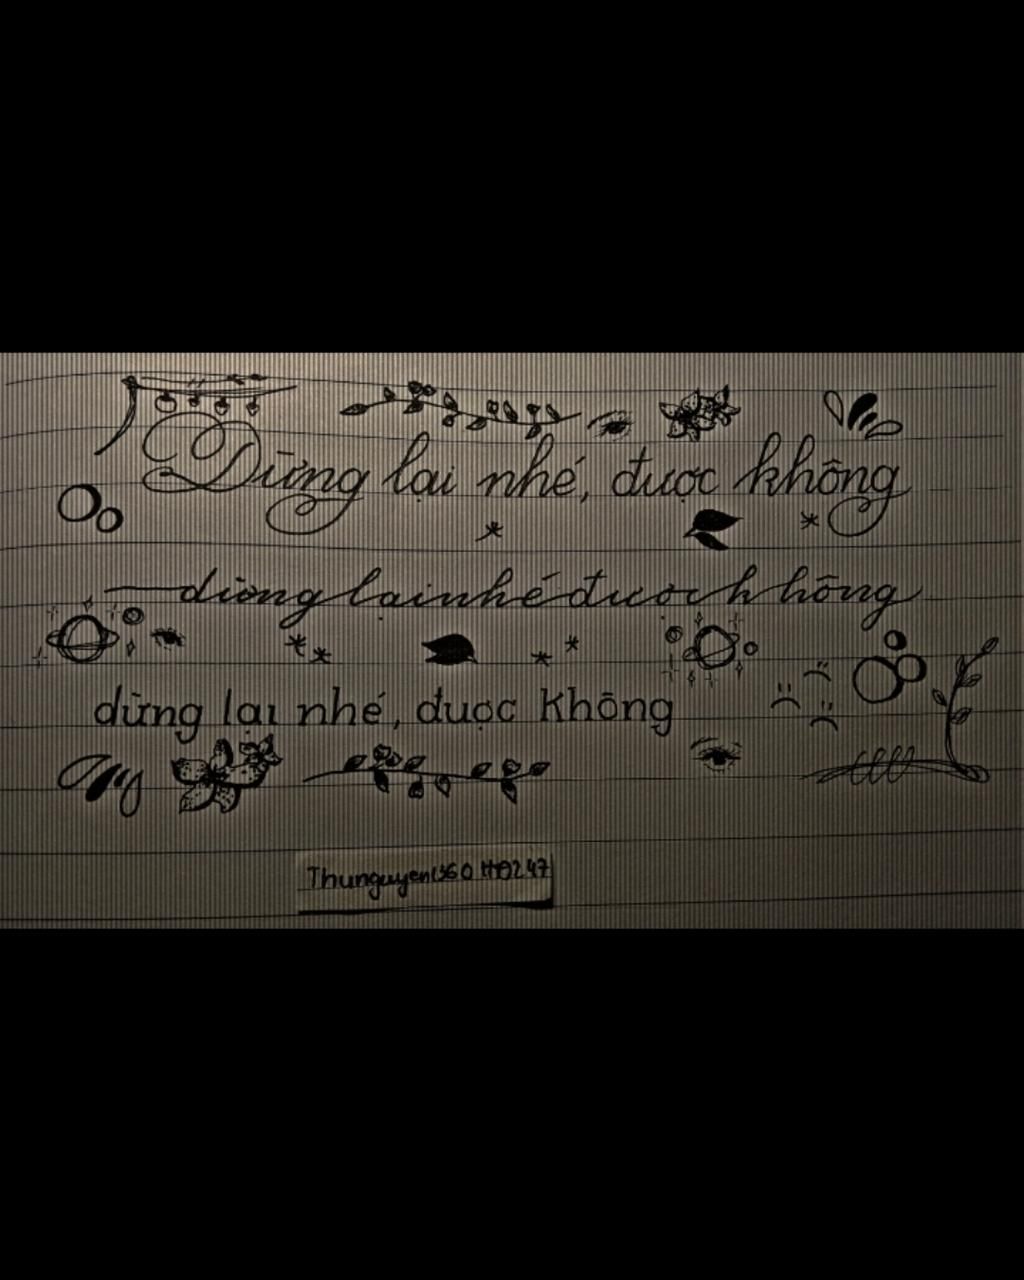 Dừng lại nhé, được không
dừng lại nhé được không
dừng lại nhé, được không